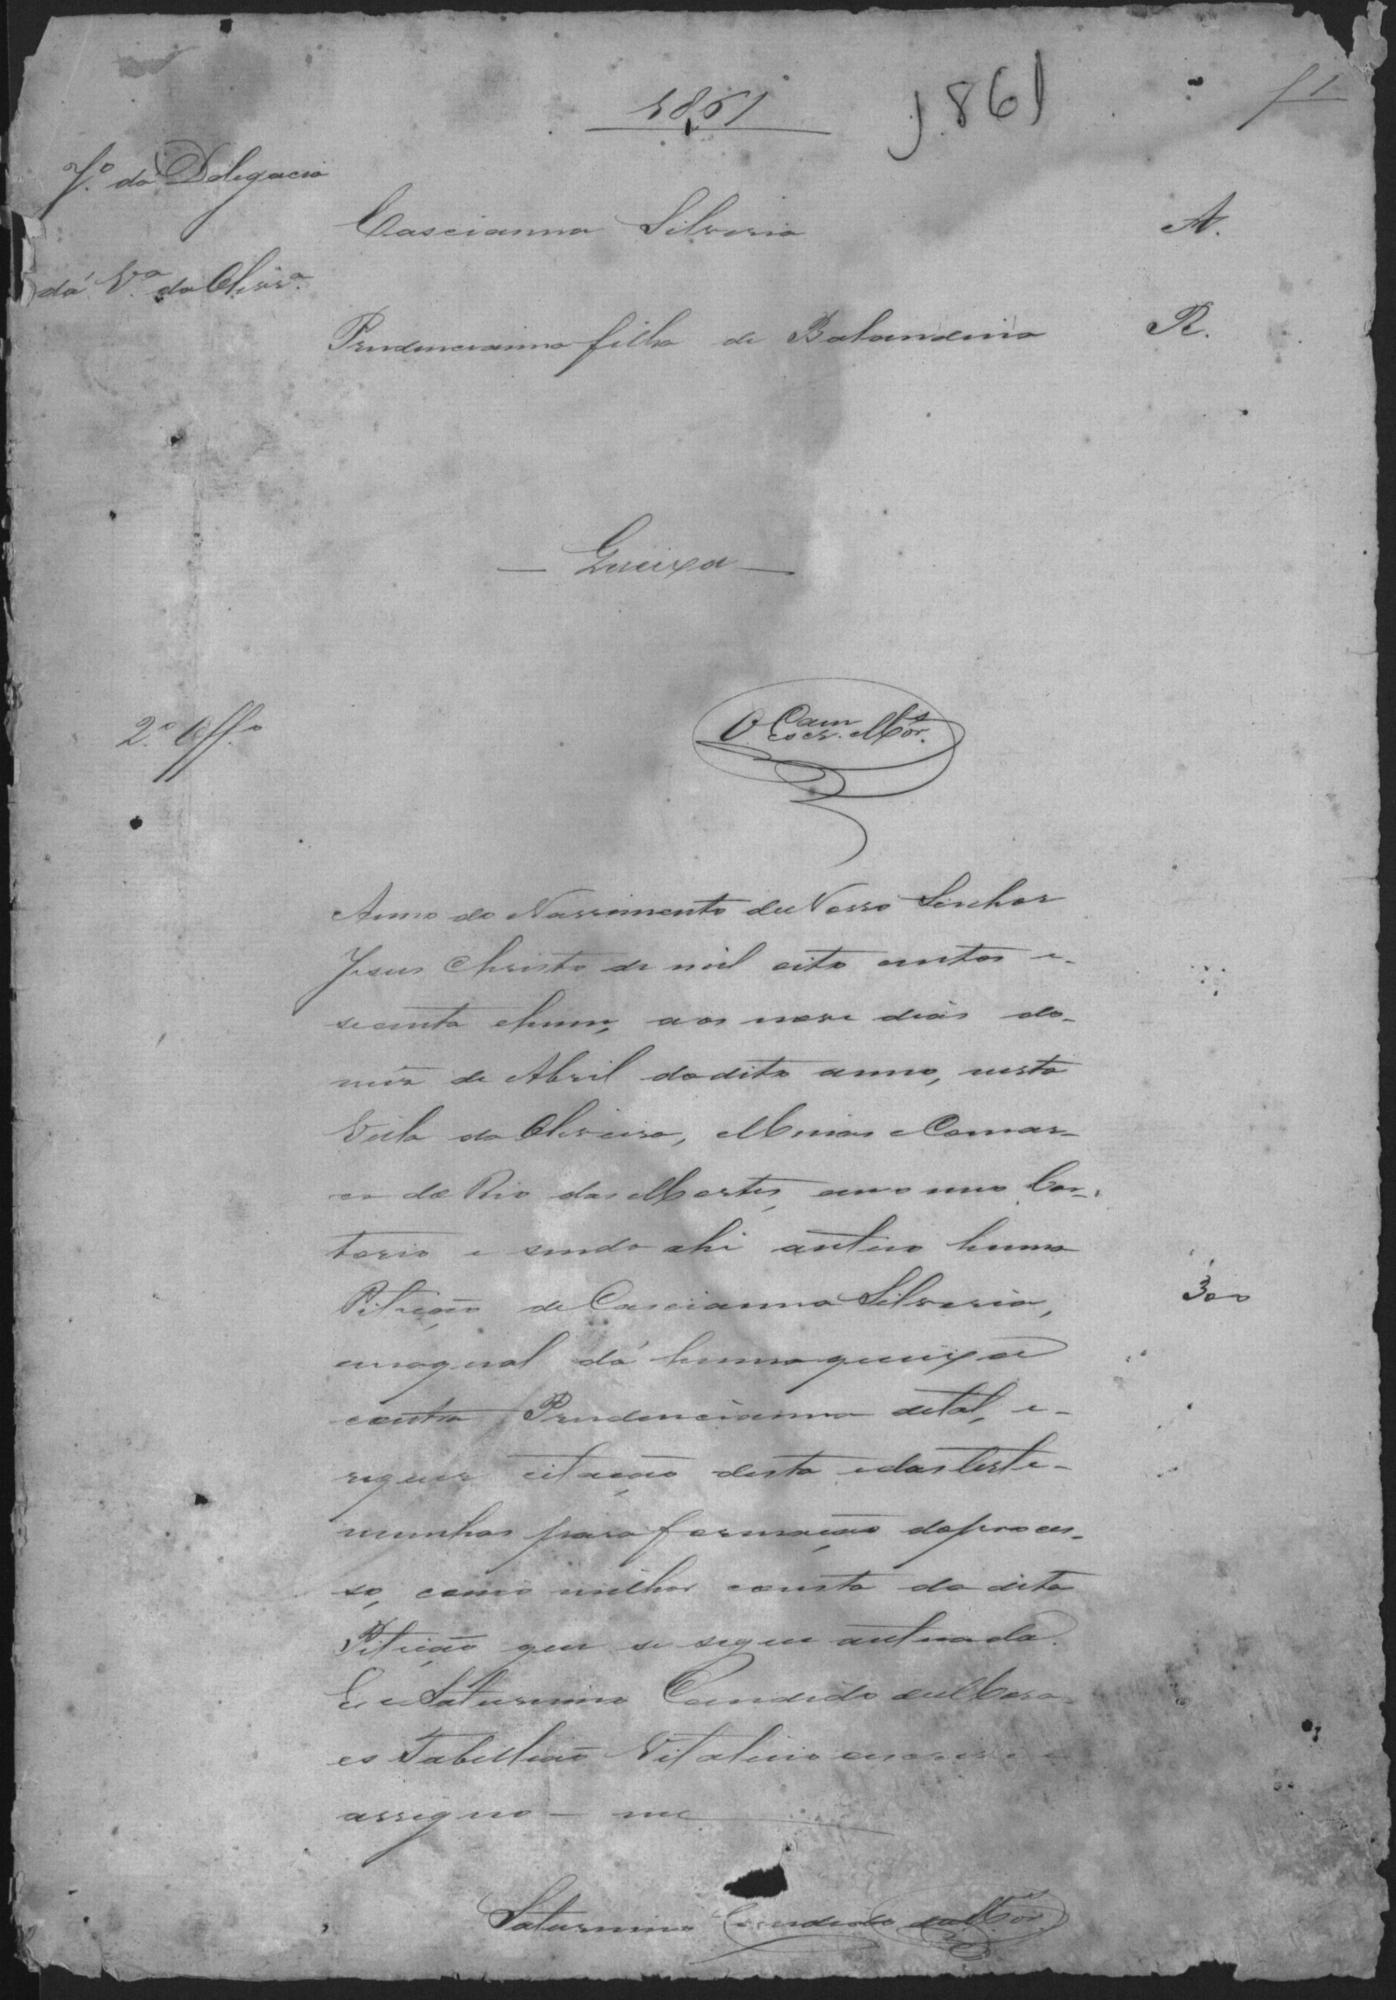 1861
1861
f 1
J.º da Delegacia
Cascianna Silveria A.
da V.ª da Olivr.ª
Prudencianna filha de Balandina R.
— Queixa —
2.º Off.º
O Escr. Mor.
Anno do Nascimento de Nosso Senhor
Jesus Christo de mil oito centos e
secenta e hum, aos nove dias do
mez de Abril do dito anno, nesta
Villa da Oliveira, Minas e Comar-
ca do Rio das Mortes, em o meu Car-
torio e sendo ahi autuo huma
Petição de Cascianna Silveria,
em a qual dá huma queixa
contra Prudencianna de tal, e
requer citação desta e das teste-
munhas para formação do proces-
so, como milhor consta da dita
Petição que se segue autuada.
Eu Saturnino Candido de Mora-
es Tabellião Vitalicio escrevi e
assigno-me
300
Saturnino Candido de Mor.